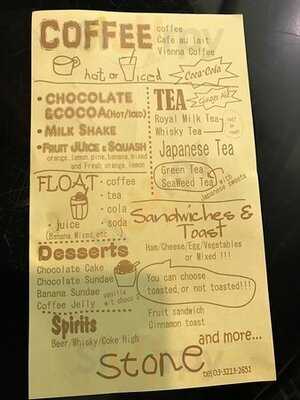 COFFEE
coffee
Cafe au lait
Vienna Coffee
hot or iced
Coca-Cola
• CHOCOLATE
&COCOA(HOT/ICED)
• MILK SHAKE
• FRUIT JUICE & SQUASH
orange, lemon, pine, banana, mixed
and Fresh orange, lemon
TEA
Ginger Ale
Royal Milk Tea
Whisky Tea
Japanese Tea
Green Tea
SeaWeed Tea
with
Japanese sweets
FLOAT
• coffee
• tea
• cola
• soda
• juice
(Banana, Mixed, etc...)
Sandwiches &
Toast
Ham/Cheese/Egg/Vegetables
or Mixed !!!
You can choose
toasted or not toasted!!!
Fruit sandwich
Cinnamon toast
Desserts
Chocolate Cake
Chocolate Sundae
Banana Sundae
Coffee Jelly
vanilla
Spirits
Beer/Whisky/Coke High
and more...
Stone
tel 03-3213-2651